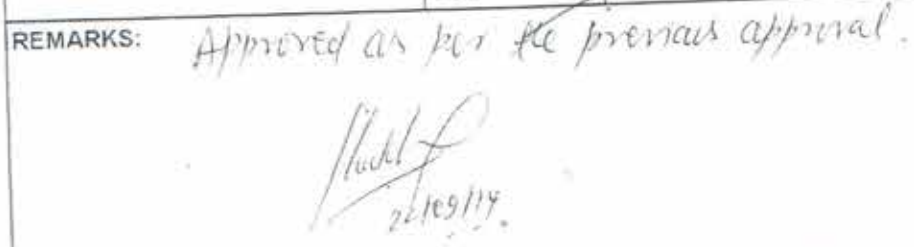 REMARKS: Approved as per the previous approval.